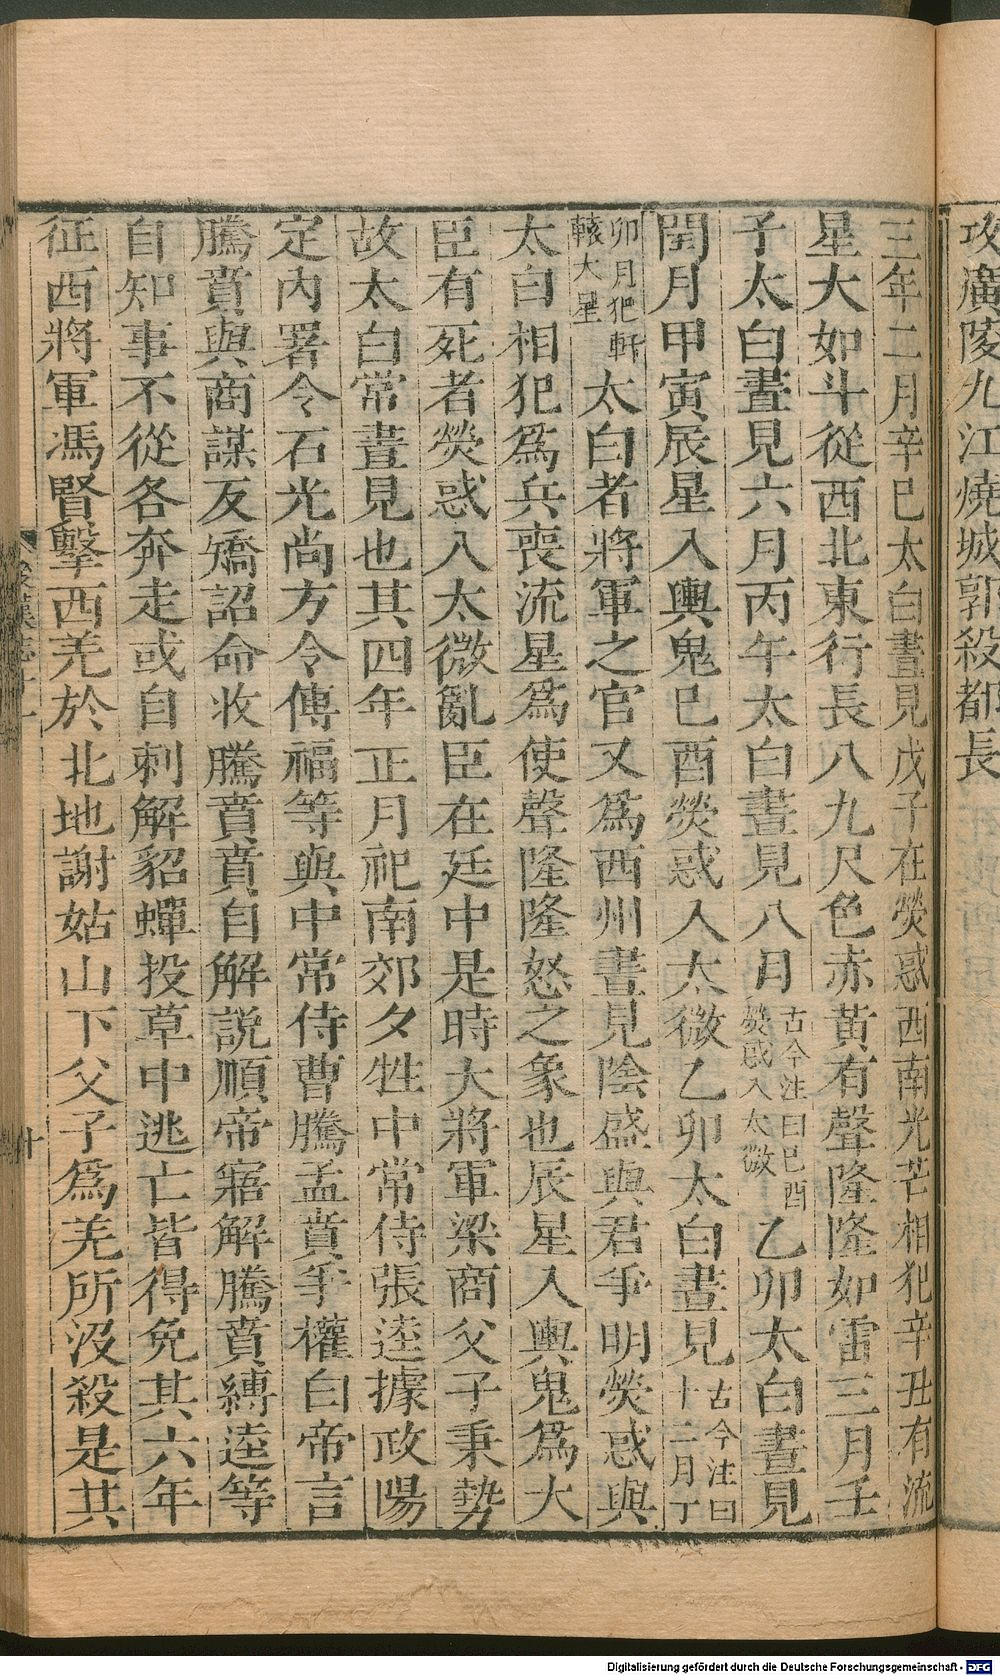 攻廣陵九江燒城郭殺都長
三年二月辛巳太白晝見戊子在熒惑西南光芒相犯辛丑有流
星大如斗從西北東行長八九尺色赤黃有聲隆隆如雷三月壬
子太白晝見六月丙午太白晝見八月古今注曰巳酉熒惑入太微乙卯太白晝見
閏月甲寅辰星入輿鬼巳酉熒惑入太微乙卯太白晝見古今注曰十二月丁
卯月犯軒轅大星太白者將軍之官又爲西州晝見陰盛與君爭明熒惑與
太白相犯爲兵喪流星爲使聲隆隆怒之象也辰星入輿鬼爲大
臣有死者熒惑入太微亂臣在廷中是時大將軍梁商父子秉勢
故太白常晝見也其四年正月祀南郊夕牲中常侍張逵據政陽
定內署令石光尚方令傅福等與中常侍曹騰孟賁爭權白帝言
騰賁與商謀反矯詔命收騰賁賁自解說順帝寤解騰賁縛逵等
自知事不從各奔走或自刺解貂蟬投草中逃亡皆得免其六年
征西將軍馮賢擊西羌於北地謝姑山下父子爲羌所沒殺是其
Digitalisierung gefördert durch die Deutsche Forschungsgemeinschaft - DFG